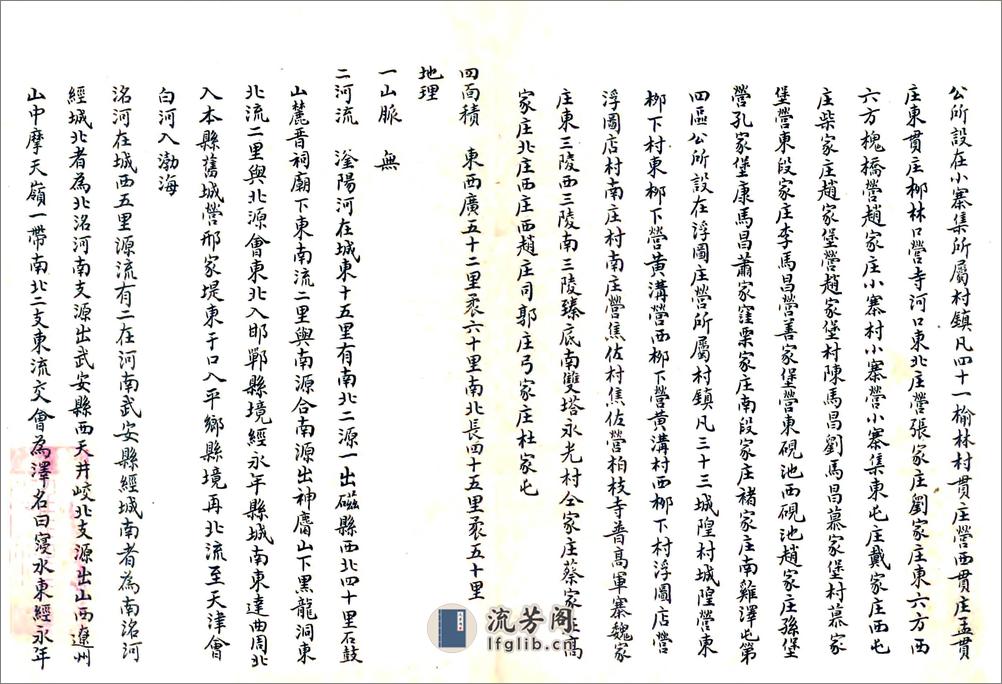 公所設在小寨集所屬村鎮凡四十一榆林村貫庄營西貫庄孟貫
庄東貫庄柳林口營寺河口東北庄營張家庄劉家庄東六方西
六方槐橋營趙家庄小寨村小寨營小寨集東屯庄戴家庄西屯
庄柴家庄趙家堡營趙家堡村陳馬昌劉馬昌慕家堡村慕家
堡營東段家庄李馬昌營善家堡營東硯池西硯池趙家庄孫堡
營孔家堡康馬昌蕭家窪栗家庄南段家庄褚家庄南雞澤屯第
四區公所設在浮圖庄營所屬村鎮凡三十三城隍村城隍營東
柳下村東柳下營黄溝營西柳下營黄溝村西柳下村浮圖店營
浮圖店村南庄村南庄營焦佐村焦佐營柏枝寺普高軍寨魏家
庄東三陵西三陵南三陵臻底南雙塔永光村仝家庄蔡家庄高
家庄北庄西庄西趙庄司郭庄弓家庄杜家屯
四面積 東西廣五十二里袤六十里南北長四十五里袤五十里
地理
一山脈 無
二河流 滏陽河在城東十五里有南北二源一出磁縣西北四十里石鼓
山麓晋祠廟下東南流二里與南源合南源出神麕山下黑龍洞東
北流二里與北源會東北入邯鄲縣境經永年縣城南東達曲周北
入本縣舊城營邢家堤東于口入平鄉縣境再北流至天津會
白河入渤海
洺河在城西五里源流有二在河南武安縣經城南者為南洺河
經城北者為北洺河南支源出武安縣西天井峧北支源出山西遼州
山中摩天嶺一帶南北二支東流交會為澤名曰寖水東經永年
流芳阁
lfglib.cn